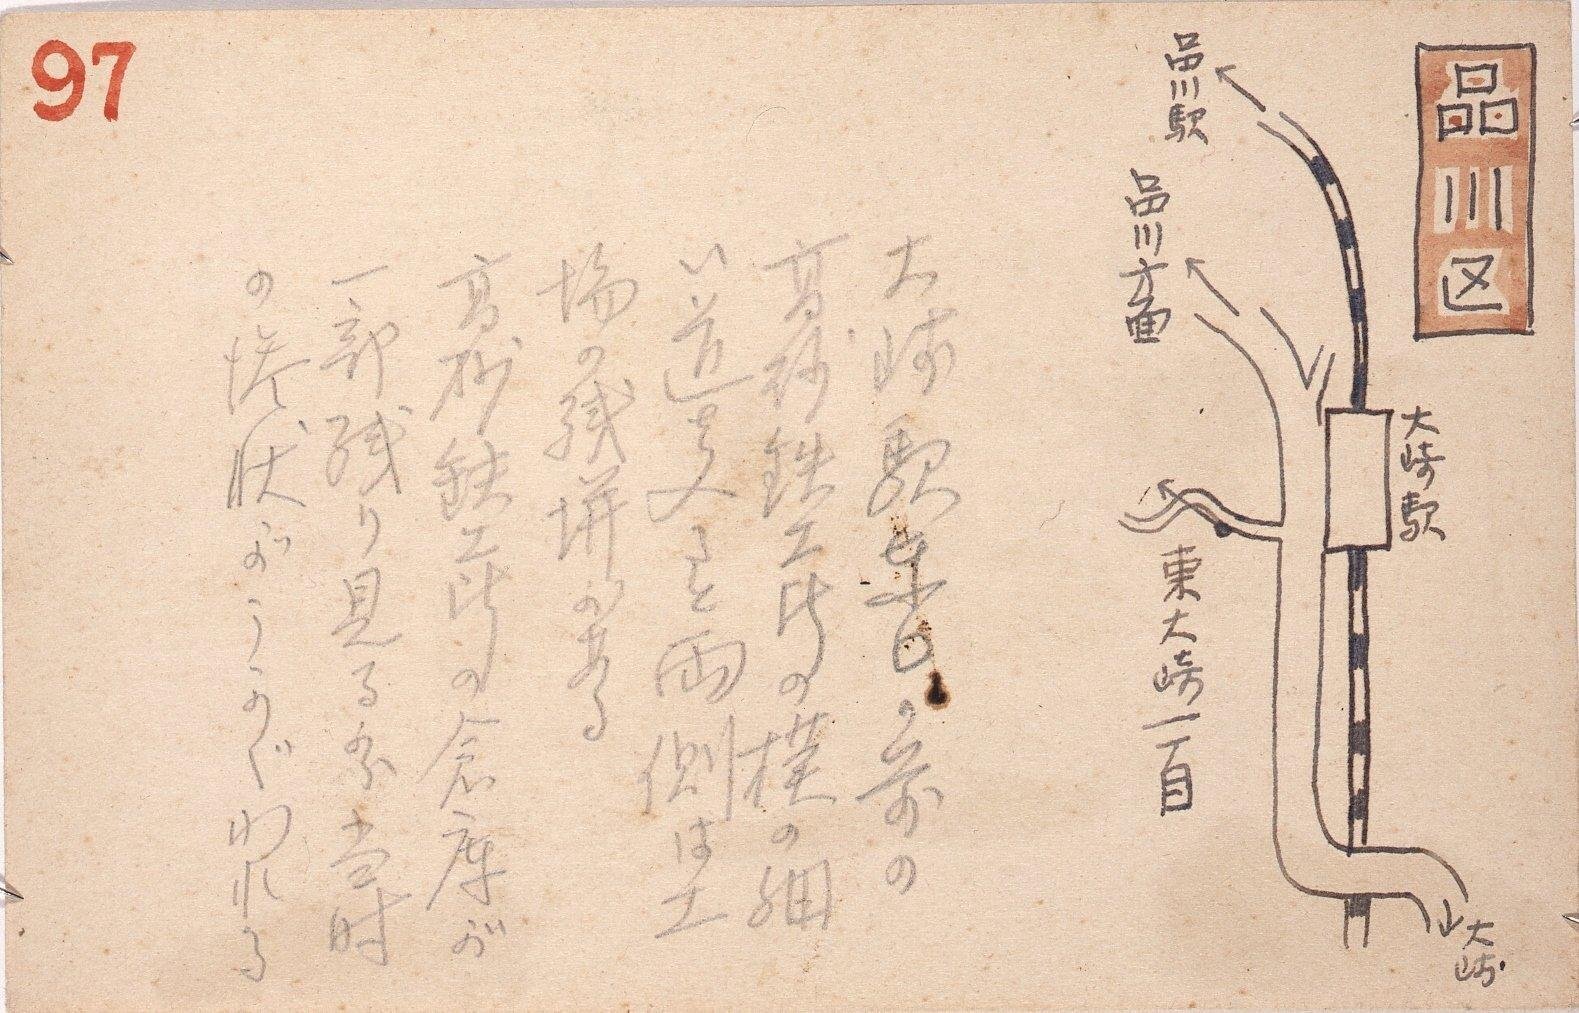 97
品川区
品川駅
品川方面
大崎駅
東大崎一丁目
大崎
大崎駅東口の前の
高砂鉄工所の横の細
い道を入ると両側は工
場の残塀がある
高砂鉄工所の倉庫が
一部残り見る影当時
の惨状がうかがわれる